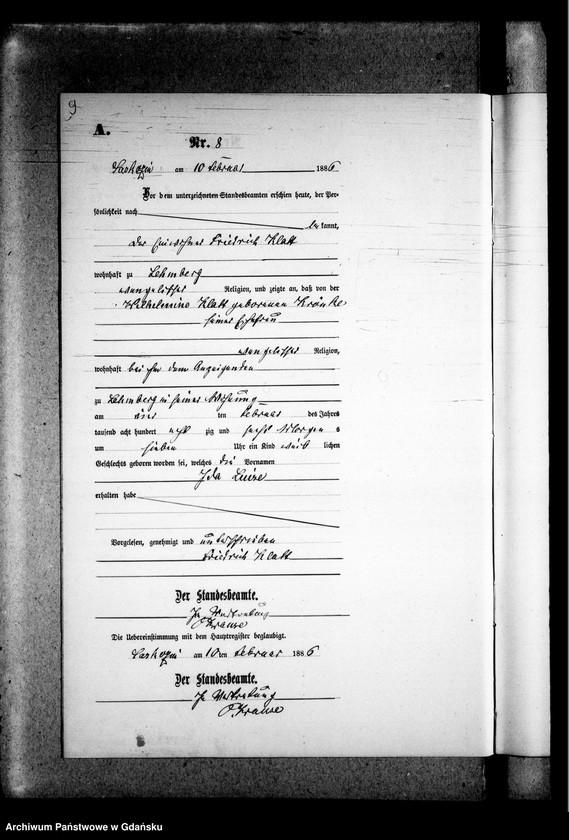 9
A.
Nr. 8
am 10 Februar 1886
Vor dem unterzeichneten Standesbeamten erschien heute, der Per-
sönlichkeit nach bekannt,
der Einwohner Friedrich Klatt
wohnhaft zu Lehmberg
evangelischer Religion, und zeigte an, daß von der
Wilhelmine Klatt geborenen Krönke
seiner Ehefrau
evangelischer Religion,
wohnhaft bei ihm dem Anzeigenden
zu Lehmberg in seiner Wohnung
am vier ten Februar des Jahres
tausend acht hundert acht zig und sechs Morgens
um sieben Uhr ein Kind weib lichen
Geschlechts geboren worden sei, welches die Vornamen
Ida Luise
erhalten habe
Vorgelesen, genehmigt und unterschrieben
Friedrich Klatt
Der Standesbeamte.
In Vertretung
Krause
Die Uebereinstimmung mit dem Hauptregister beglaubigt.
am 10ten Februar 1886
Der Standesbeamte.
In Vertretung
Krause
Archiwum Państwowe w Gdańsku